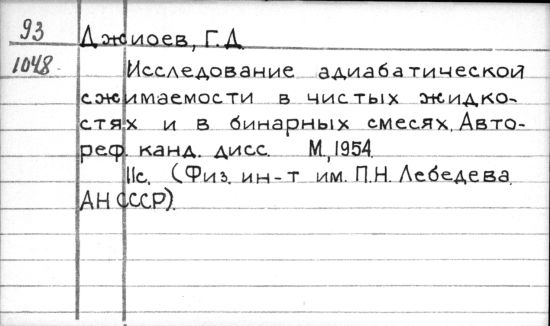 93
Джиоев, Г.Д.
1048
Исследование адиабатической
сжимаемости в чистых жидко-
стях и в бинарных смесях. Авто-
реф. канд. дисс. М., 1954.
11с. (Физ. ин-т им. П.Н. Лебедева
АН СССР).